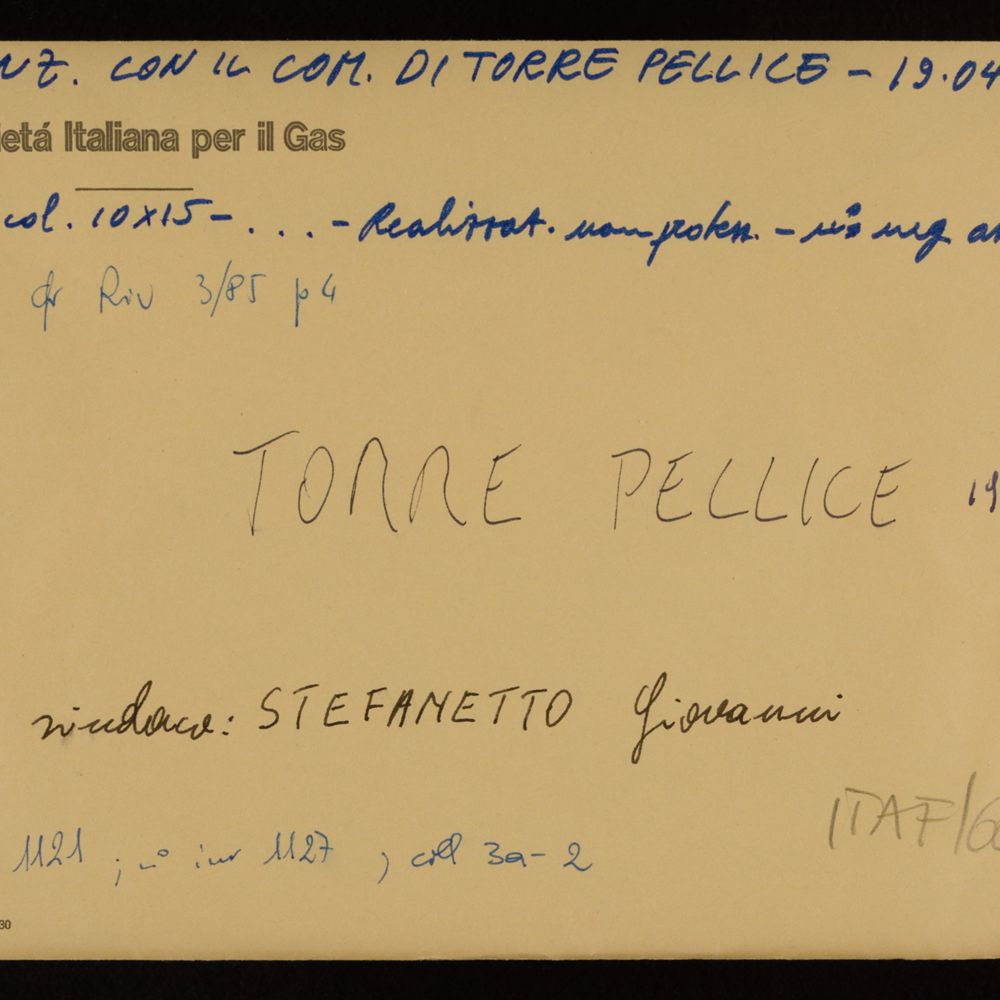 NZ. CON IL COM. DI TORRE PELLICE - 19.04
ietá Italiana per il Gas
col. 10x15 - . . . - Realizzat. non poten. - n° neg
cfr Riv 3/85 p 4
TORRE PELLICE 19
sindaco: STEFANETTO Giovanni
ITAF/6
1121 ; n° inv 1127 , coll 3a-2
30